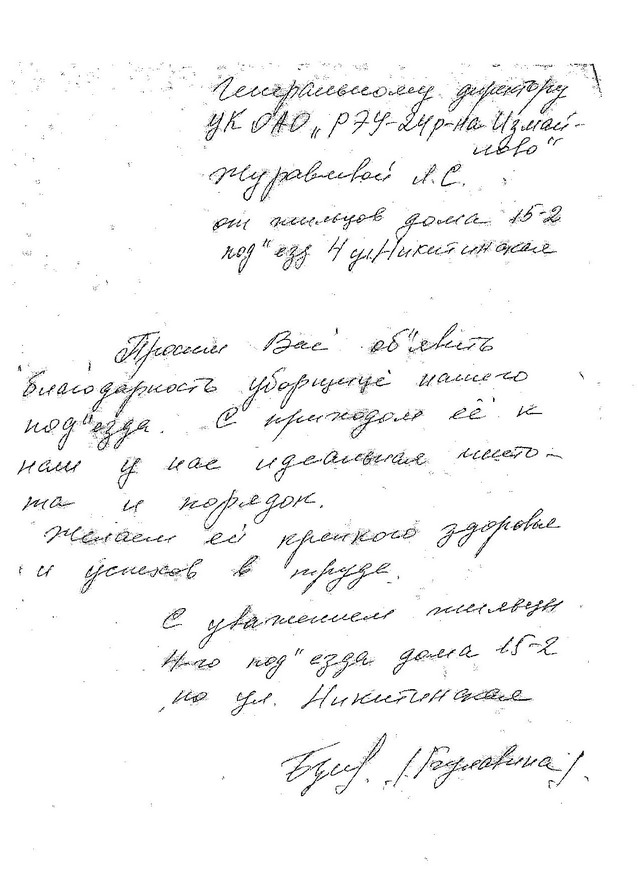 Генеральному директору
УК ОАО „РЭУ-24р-на Измай-
лово"
Журавлевой Л.С.
от жильцов дома 15-2
под"езд 4 ул.Никитинская
Просим Вас об"явить
благодарность уборщице нашего
под"езда. С приходом её к
нам у нас идеальная чисто-
та и порядок.
Желаем ей крепкого здоровья
и успехов в труде.
С уважением жильцы
4-го под"езда дома 15-2
по ул. Никитинская
/Булавина/.